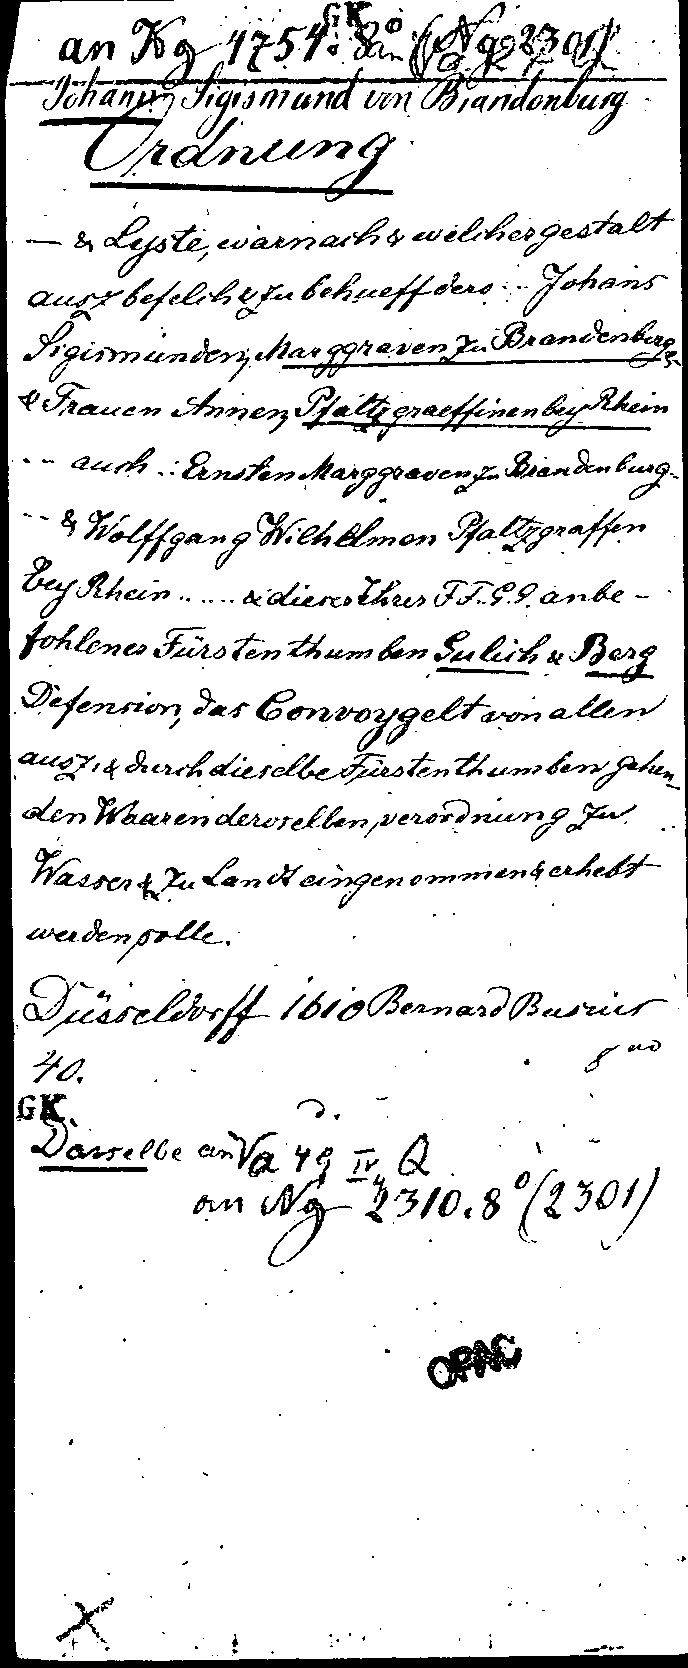 GK
an Kg 4754: 8° an (Ng 2301)
Johann Sigismund von Brandenburg
Ordnung
— & Lyste, warnach & welchergestalt
ausz befelch & zu behueff dero ... Johans
Sigismunden, Marggraven zu Brandenburg
& Frauen Annen, Pfaltzgraeffinen bey Rhein
... auch .. Ernsten Marggraven zu Brandenburg
... & Wolffgang Wilhelmen Pfaltzgraffen
bey Rhein ...... & dieser Ihrer F.F.G.G. anbe-
fohlenes Fürstenthumben Gulich & Berg
Defension, das Convoygelt von allen
ausz, & durch dieselbe Fürstenthumben gehen-
den Waaren deroselben, verordnung zu
Wasser & zu Landt eingenommen & erhebt
werden solle.
Düsseldorff 1610 Bernard Busius
40.
GK.
Dasselbe an Va 49 IV, Q
an Ng 2310. 8° (2301)
OPAC